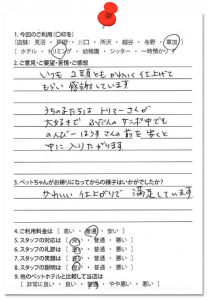 1.今回のご利用(○印を)
[店舗：見沼 ・ 戸田 ・ 川口 ・ 所沢 ・ 越谷 ・ 与野 ・ 草加]
[ ホテル ・ トリミング ・ 幼稚園 ・ シッター ・ 一時預かり ]
2.ご意見・ご要望・苦情・ご感想
いつも2頭ともかわいく仕上げて
もらい感謝しています
うちの子たちは トリマーさんが
大好きで ふだんの サンポ中でも
のんびーはうすさんの前を歩くと
中に入りたがります
3.ペットちゃんがお帰りになってからの様子はいかがでしたか？
かわいい仕上がりで 満足しています
4.ご利用料金は [ 高い ・ 普通 ・ 安い ]
5.スタッフの対応は [ 良い ・ 普通 ・ 悪い ]
6.スタッフの礼節は [ 良い ・ 普通 ・ 悪い ]
7.スタッフの笑顔は [ 良い ・ 普通 ・ 悪い ]
8.スタッフの説明は [ 良い ・ 普通 ・ 悪い ]
9.他のペットホテルと比較して当店は
[ 非常に良い ・ 良い ・ 普通 ・ やや悪い ・ 悪い ]